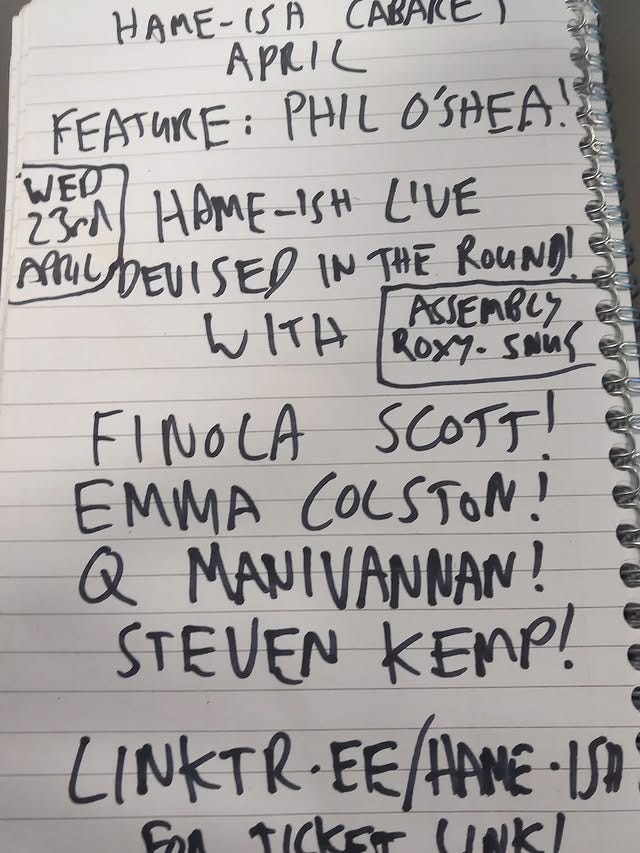 HAME-ISH CABARET
APRIL
FEATURE: PHIL O'SHEA!
WED
23rd
APRIL
HAME-ISH LIVE
DEVISED IN THE ROUND!
WITH
ASSEMBLY
ROXY- SNUG
FINOLA SCOTT!
EMMA COLSTON!
Q MANIVANNAN!
STEVEN KEMP!
LINKTR.EE/HAME.ISH
FOR TICKET LINK!